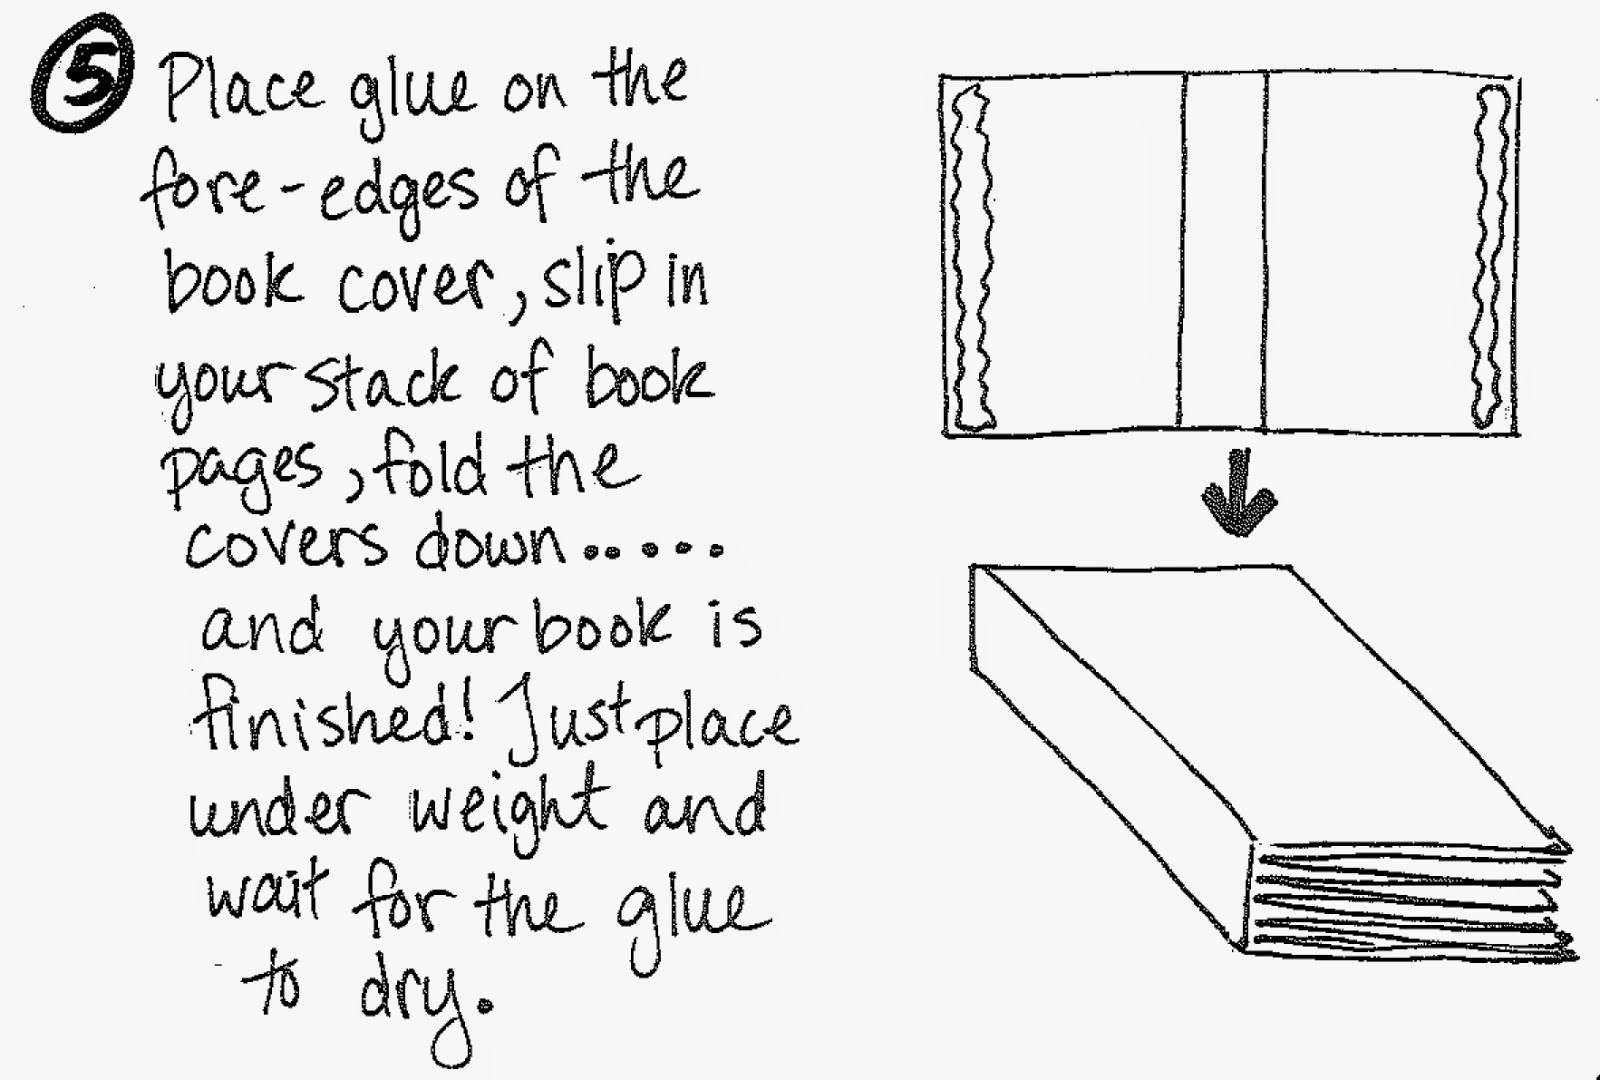 5 Place glue on the
fore-edges of the
book cover, slip in
your stack of book
pages, fold the
covers down.....
and your book is
finished! Just place
under weight and
wait for the glue
to dry.